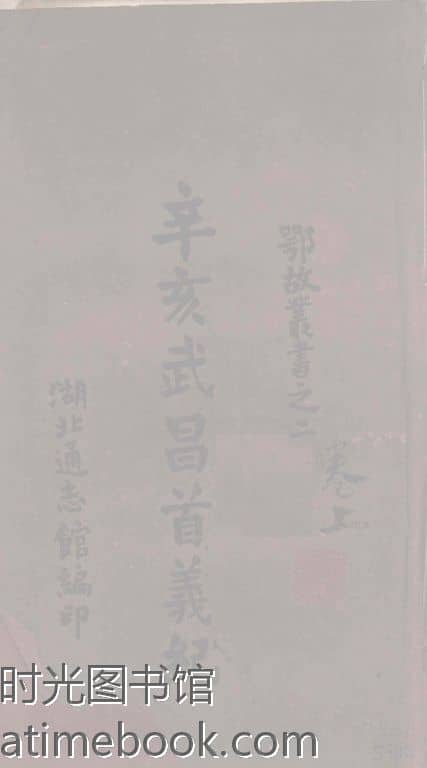 鄂故叢書之二
卷上
辛亥武昌首義紀
湖北通志館編印
时光图书馆
atimebook.com